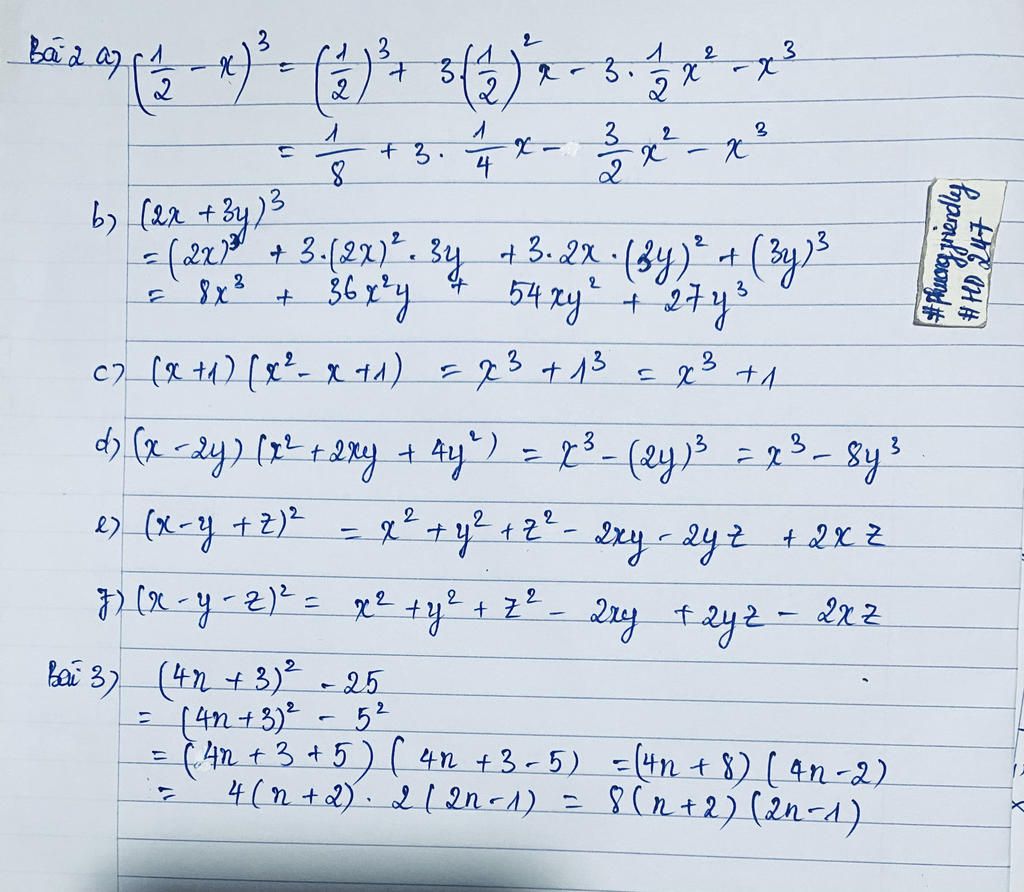 Bài 2 a) (1/2 - x)³ = (1/2)³ + 3.(1/2)² x - 3 . 1/2 x² - x³
= 1/8 + 3 . 1/4 x - 3/2 x² - x³
b) (2x + 3y)³
= (2x)³ + 3.(2x)² . 3y + 3.2x . (3y)² + (3y)³
= 8x³ + 36x²y + 54xy² + 27y³
#phuongfriendly
#HD 247
c) (x+1) (x² - x +1) = x³ + 1³ = x³ + 1
d) (x - 2y) (x² + 2xy + 4y²) = x³ - (2y)³ = x³ - 8y³
e) (x - y + z)² = x² + y² + z² - 2xy - 2yz + 2xz
f) (x - y - z)² = x² + y² + z² - 2xy + 2yz - 2xz
Bài 3) (4n + 3)² - 25
= (4n+3)² - 5²
= (4n + 3 + 5) (4n + 3 - 5) = (4n + 8) (4n - 2)
= 4(n+2) . 2(2n-1) = 8(n+2) (2n-1)